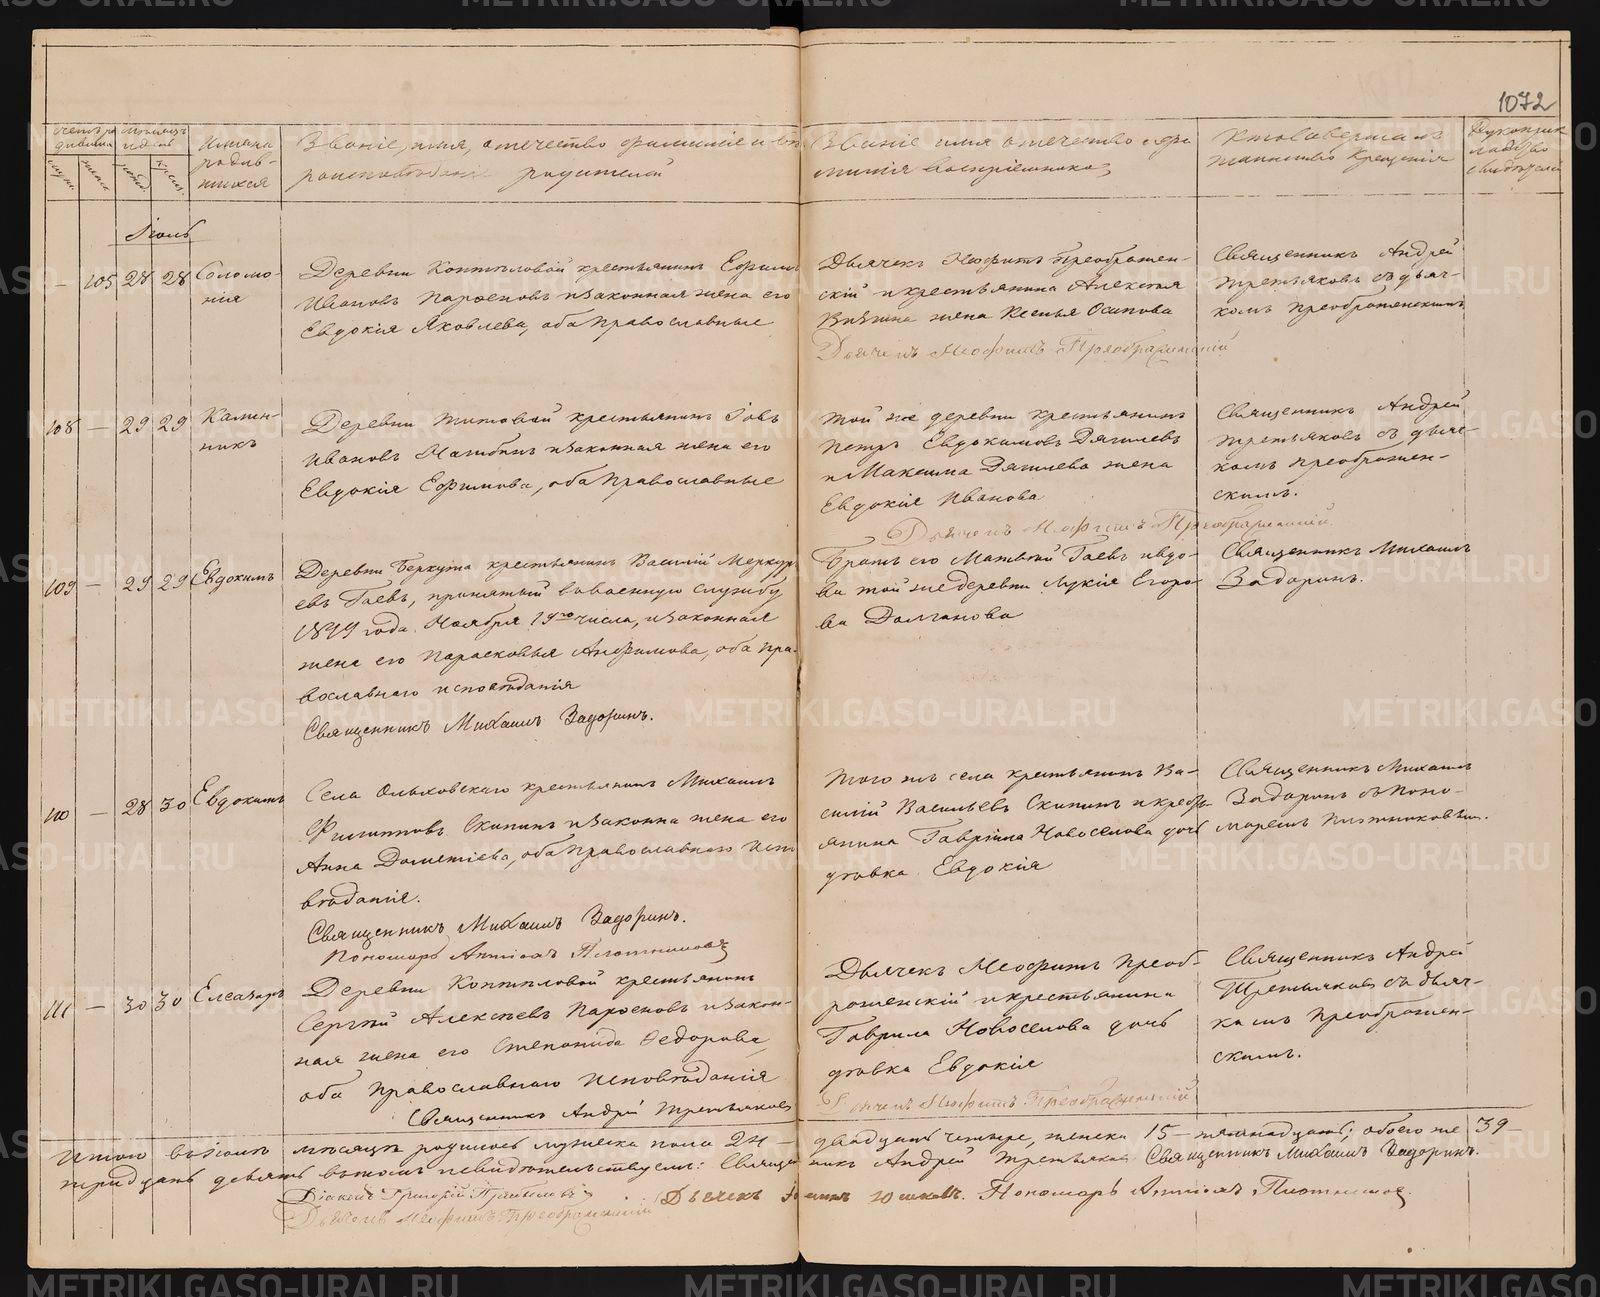 1072
Счетъ ро
дившихся
Мѣсяцъ
и день
Имена
родив-
шихся
Званіе, имя, отечество, фамилія и вѣ
роисповѣданіе родителей
Званіе имя отечество и фа
милія воспріемниковъ
Кто совершалъ
таинство крещенія
Рукоприк
ладство
свидѣтелей
Іюль
– 105 28 28 Соломо-
нія
Деревни Коптяловой крестьянинъ Ефимъ
Ивановъ Парѳеновъ и законная жена его
Евдокія Яковлева, оба православные
Дьячекъ Неофитъ Преображен-
скій и крестьянина Алексѣя
жена Ксенья Осипова
Дьячекъ Неофитъ Преображенскій
Священникъ Андрей
Третьяковъ съ дьяч-
комъ Преображенскимъ
108 – 29 29 Камен-
никъ
Деревни Титовой крестьянинъ Іовъ
Ивановъ и законная жена его
Евдокія Ефимова, оба православные
той же деревни крестьянинъ
Петръ Евдокимовъ Дягилевъ
и Максима Дягилева жена
Евдокія Иванова
Дьячекъ Неофитъ Преображенскій
Священникъ Андрей
Третьяковъ съ дьяч-
комъ Преображен-
скимъ.
109 – 29 29 Евдокимъ
Деревни Беркута крестьянинъ Василій Меркурь
евъ Гаевъ, принятый въ военную службу
1879 года Ноября числа, и законная
жена его Парасковья Анфимова, оба пра-
вославнаго исповѣданія
Священникъ Михаилъ Задоринъ.
Братъ его Матвѣй Гаевъ и вдо-
ва той же деревни Лукія Егоро-
ва Долганова
Священникъ Михаилъ
Задоринъ.
110 – 28 30 Евдокимъ
Села Ольховскаго крестьянинъ Михаилъ
Филипповъ Скипинъ и законна жена его
Анна Дометіева, оба православнаго испо
вѣданія.
Священникъ Михаилъ Задоринъ.
Пономарь Антіохъ Плотниковъ
того же села крестьянинъ Ва-
силій Васильевъ Скипинъ и кресть-
янина Гавріила Новоселова дочь
дѣвка Евдокія
Священникъ Михаилъ
Задоринъ съ поно-
маремъ Плотниковымъ.
111 – 30 30 Елеазаръ
Деревни Коптяловой крестьянинъ
Сергѣй Алексѣевъ Парѳеновъ и закон-
ная жена его Степанида Ѳедорова,
оба православнаго исповѣданія
Священникъ Андрей Третьяковъ
Дьячекъ Неофитъ Преоб-
раженскій и крестьянина
Гаврила Новоселова дочь
дѣвка Евдокія
Дьячекъ Неофитъ Преображенскій
Священникъ Андрей
Третьяковъ съ дьяч-
комъ Преображен-
скимъ.
Итого въ Іюлѣ мѣсяцѣ родилось мужеска пола 24 – двадцать четыре, женска 15 – пятнадцать; обоего же 39 –
тридцать девять въ чемъ и свидѣтельствуемъ: Священникъ Андрей Третьяковъ Священникъ Михаилъ Задоринъ.
Діаконъ Григорій Дьячекъ Пономарь Антіохъ Плотниковъ
Дьячекъ Неофитъ Преображенскій
METRIKI.GASO-URAL.RU